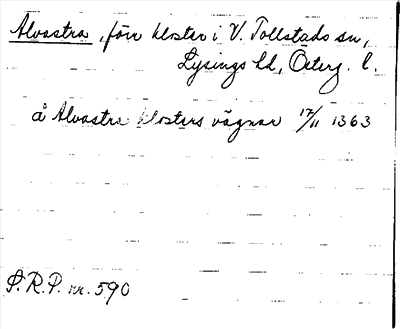 Alvastra, förr kloster i V. Tollstads sn,
Lysings hd, Österg. l.
å Alvastra klosters vägnar 17/11 1363
S.R.P. nr. 590